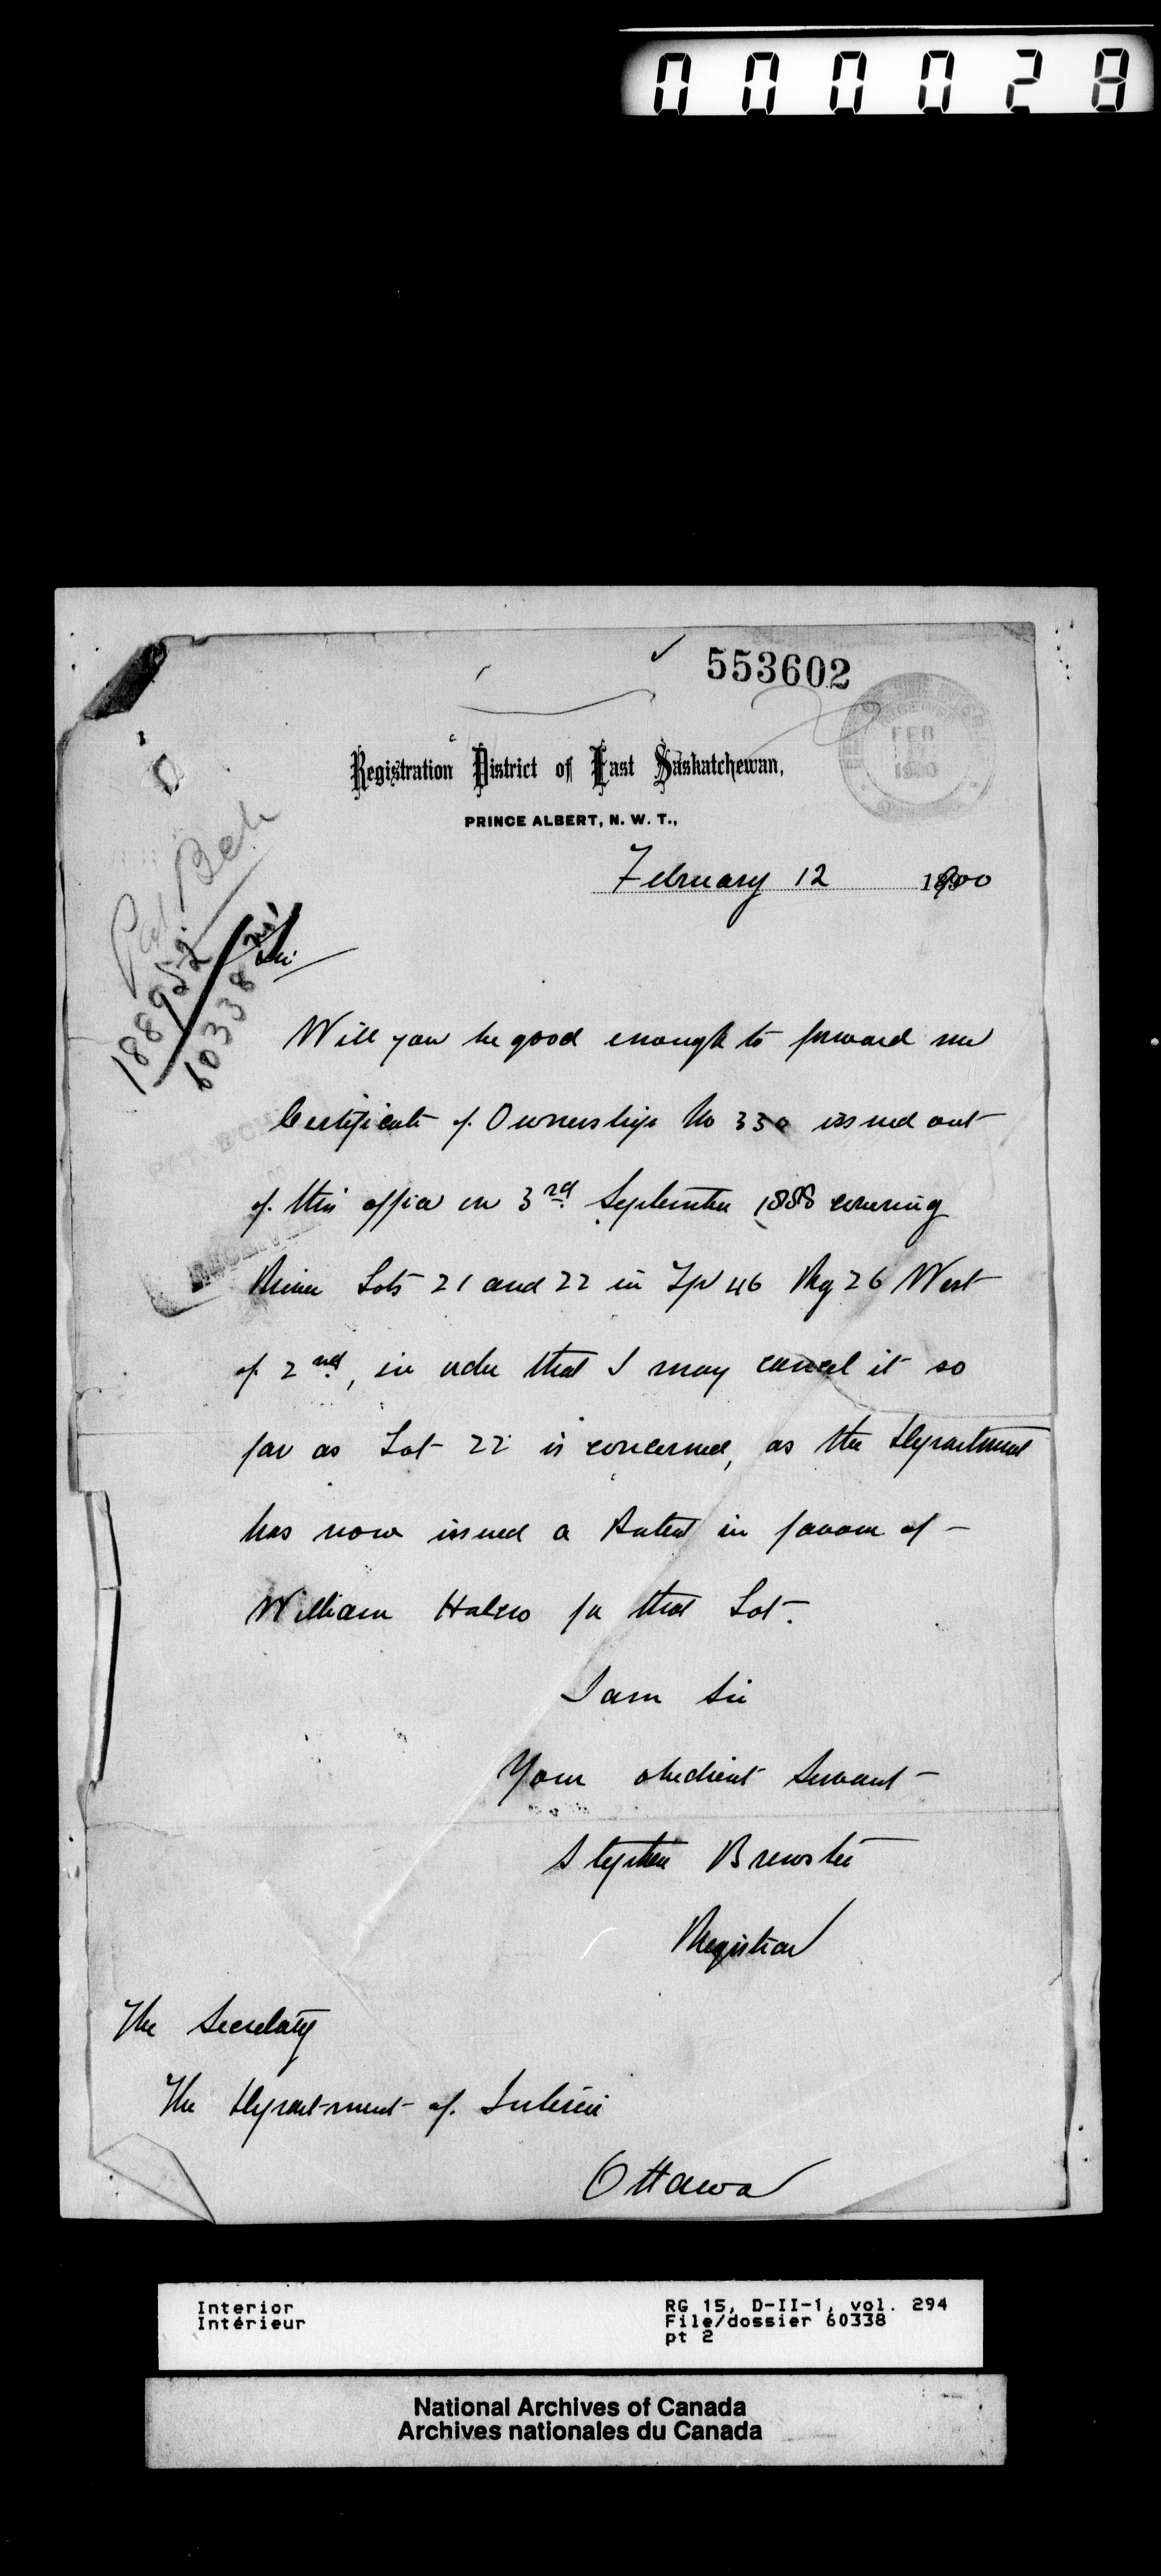 000028
553602
FEB
1900
Registration District of East Saskatchewan,
PRINCE ALBERT, N. W. T.,
February 12 1900
188952
60338
Sir
Will you be good enough to forward me
Certificate of Ownership No 330 issued out
of this office on 3rd September 1888 covering
River Lots 21 and 22 in Tp 46 Rg 26 West
of 2nd, in order that I may cancel it so
far as Lot 22 is concerned, as the Department
has now issued a Patent in favour of -
William Halcro for that Lot.
I am Sir
Your obedient Servant
Stephen Brewster
Registrar
The Secretary
The Department of Interior
Ottawa
Interior
Intérieur
RG 15, D-II-1, vol. 294
File/dossier 60338
pt 2
National Archives of Canada
Archives nationales du Canada